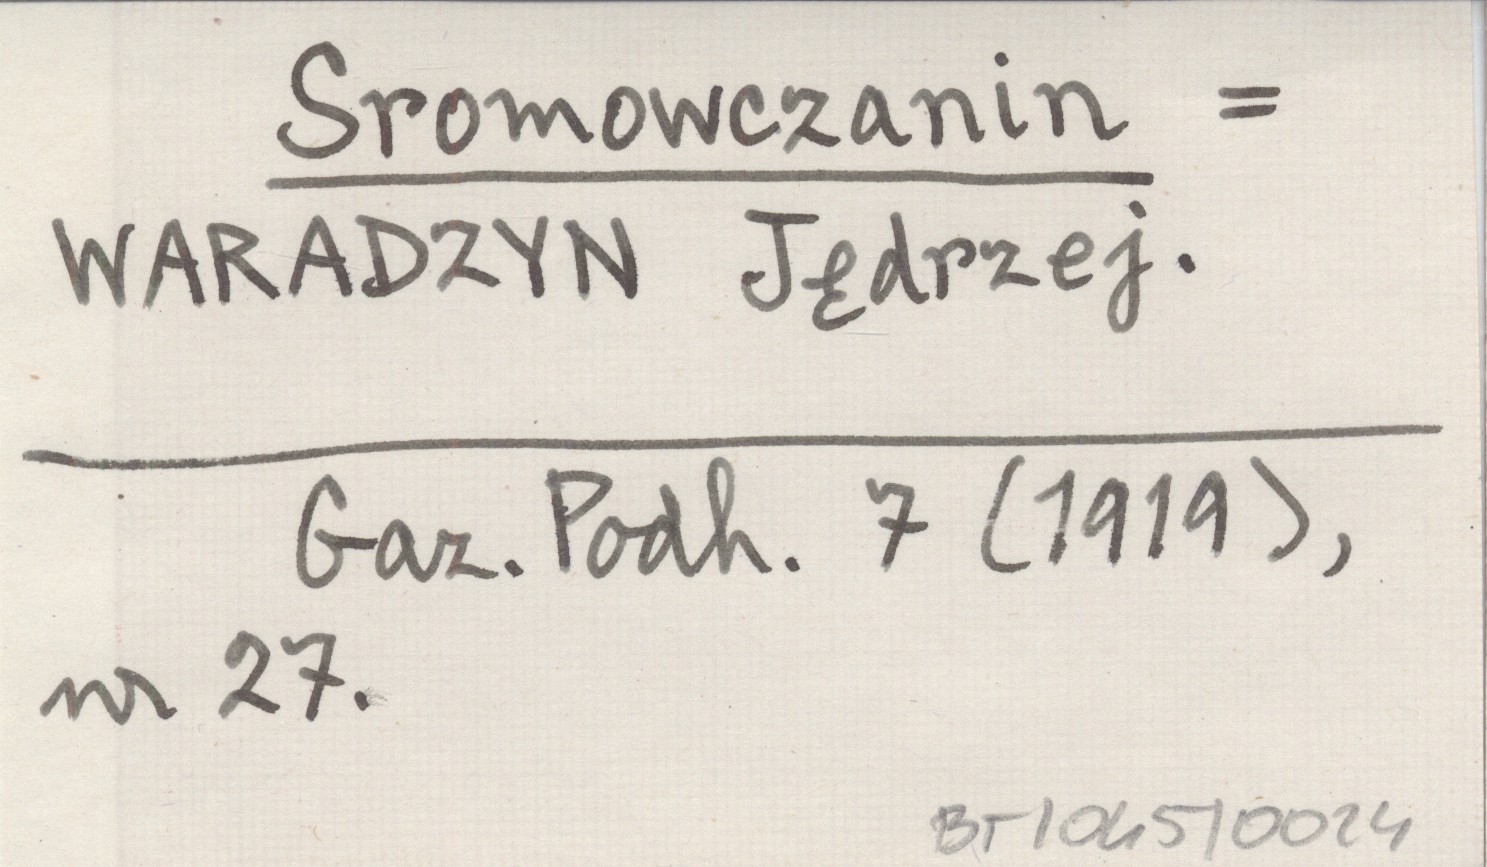 Sromowczanin =
WARADZYN Jędrzej.
Gaz. Podh. 7 (1919),
nr 27.
BT/045/0024